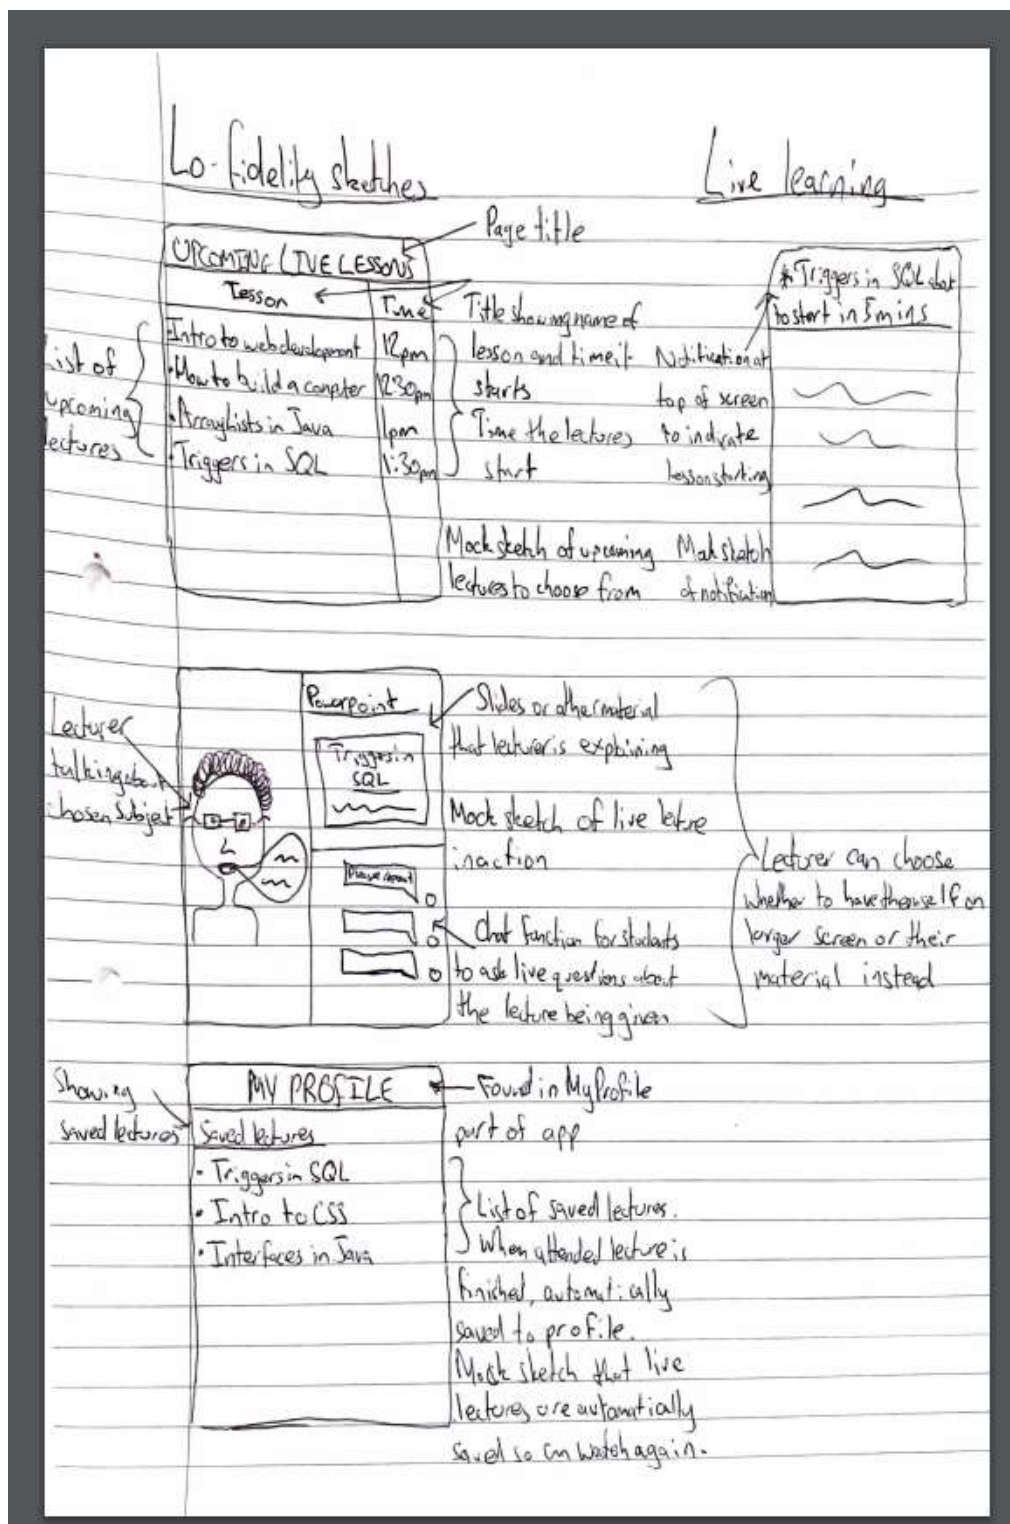 Lo-fidelity sketches
Live learning
Page title
UPCOMING LIVE LESSONS
Lesson
Time
• Intro to web development 12pm
• How to build a computer 12:30pm
• Arraylists in Java 1pm
• Triggers in SQL 1:30pm
List of
upcoming
lectures
Title showing name of
lesson and time it
starts
Time the lectures
start
Mock sketch of upcoming
lectures to choose from
Notification at
top of screen
to indicate
lesson starting
Mock sketch
of notification
* Triggers in SQL about
to start in 5 mins
Lecturer
talking about
chosen subject
Powerpoint
Triggers in
SQL
Please repeat
Slides or other material
that lecturer is explaining
Mock sketch of live lecture
in action
Chat function for students
to ask live questions about
the lecture being given
Lecturer can choose
whether to have themself on
larger screen or their
material instead
Showing
saved lectures
MY PROFILE
Saved lectures
• Triggers in SQL
• Intro to CSS
• Interfaces in Java
Found in My Profile
part of app
List of saved lectures.
When attended lecture is
finished, automatically
saved to profile.
Mock sketch that live
lectures are automatically
saved so can watch again.